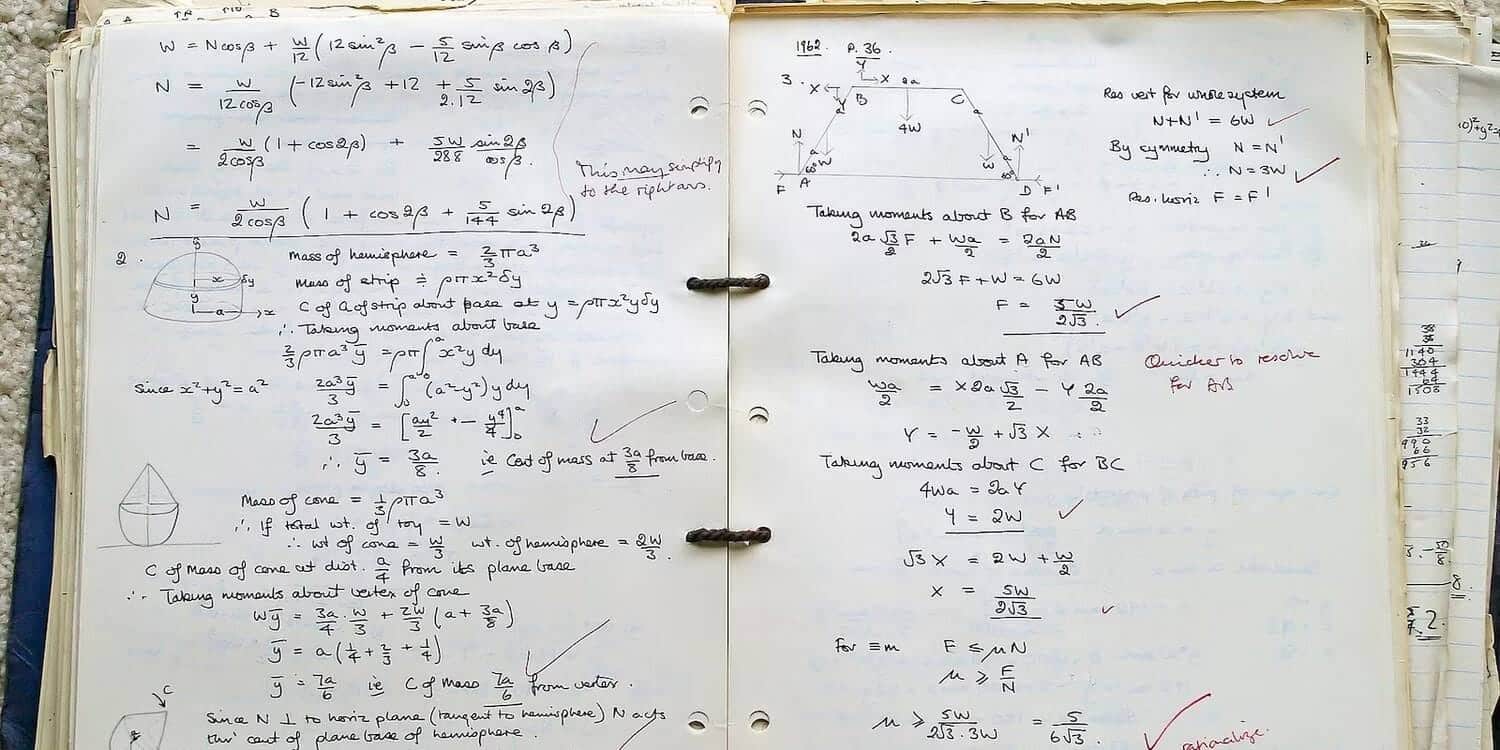 W = Ncosβ + W/12 (12 sin²β − 5/12 sinβ cosβ)
N = W/12cosβ (−12sin²β + 12 + 5/2.12 sin2β)
= W/2cosβ (1 + cos2β) + 5W/288 sin2β/cosβ.
This may simplify
to the right ans.
N = W/2cosβ (1 + cos2β + 5/144 sin2β)
2.
x δy
y
a x
Mass of hemisphere = 2/3 πa³
Mass of strip ≑ ρπx²δy
C of G of strip about base at y = ρπx²yδy
∴ Taking moments about base
2/3 ρπa³ȳ = ρπ∫₀ᵃ x²y dy
Since x²+y²=a² 2a³ȳ/3 = ∫₀ᵃ (a²−y²)y dy
2a³ȳ/3 = [ay²/2 +− y⁴/4]₀ᵃ
∴ ȳ = 3a/8. ie Cent of mass at 3a/8 from base.
Mass of cone = 1/3 ρπa³
∴ If total wt. of toy = W
∴ wt of cone = W/3 wt. of hemisphere = 2W/3.
C of Mass of cone at dist. a/4 from its plane base
∴ Taking moments about vertex of cone
Wȳ = 3a/4 . W/3 + 2W/3 (a + 3a/8)
ȳ = a(1/4 + 2/3 + 1/4)
ȳ = 7a/6 ie C of Mass 7a/6 from vertex.
C
Since N ⊥ to horiz plane (tangent to hemisphere) N acts
thro' cent of plane base of hemisphere.
1962. P. 36.
3.
Y
X X 2a
Y B C
a a
4W
N N'
a W W a
60° 60°
F A D F'
Res vert for whole system
N+N' = 6W
By symmetry N = N'
∴ N = 3W
Res. horiz F = F'
Taking moments about B for AB
2a √3/2 F + Wa/2 = 2aN/2
2√3F + W = 6W
F = 5W/2√3.
Taking moments about A for AB
Quicker to resolve
for AB
Wa/2 = X2a√3/2 − Y 2a/2
Y = −W/2 + √3 X
Taking moments about C for BC
4Wa = 2aY
Y = 2W
√3 X = 2W + W/2
X = 5W/2√3
For ≡m F ≤ μN
μ ≥ F/N
μ ≥ 5W/2√3.3W = 5/6√3.
rationalize.
38
1140
304
1444
64
1508
33
32
990
66